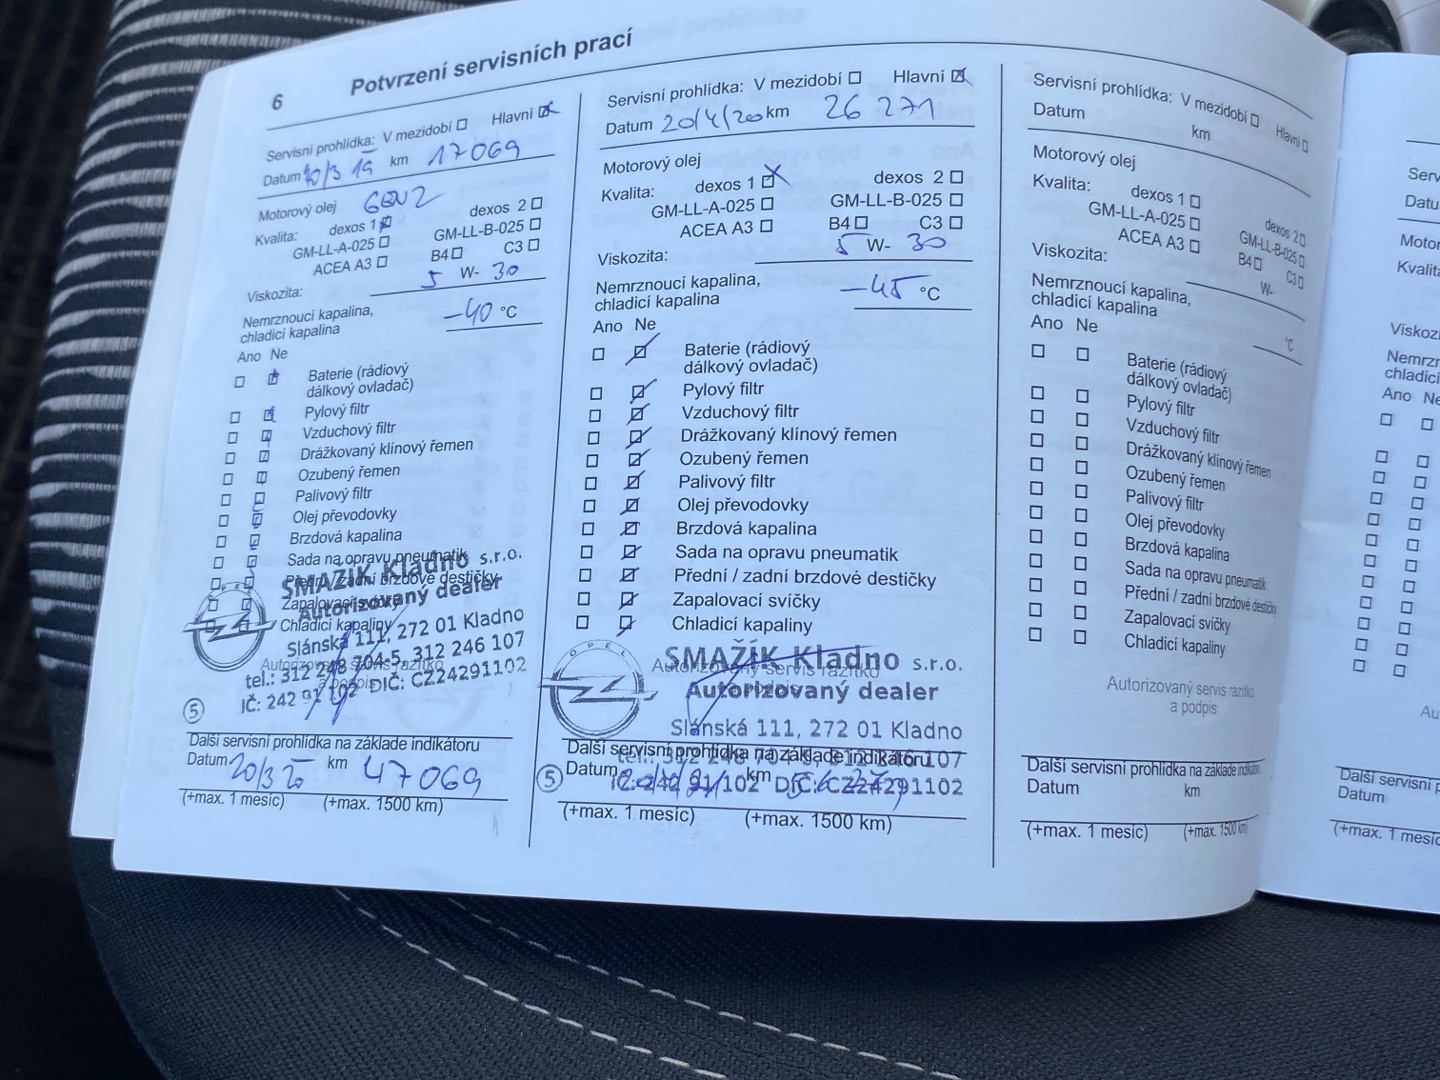 6 Potvrzení servisních prací
Servisní prohlídka: V mezidobí Hlavní
Datum 20/3 19 km 17069
Motorový olej GEN2
Kvalita: dexos 1 dexos 2
GM-LL-A-025 GM-LL-B-025
ACEA A3 B4 C3
Viskozita: 5 W- 30
Nemrznoucí kapalina,
chladicí kapalina -40 °C
Ano Ne
Baterie (rádiový
dálkový ovladač)
Pylový filtr
Vzduchový filtr
Drážkovaný klínový řemen
Ozubený řemen
Palivový filtr
Olej převodovky
Brzdová kapalina
Sada na opravu pneumatik
Přední / zadní brzdové destičky
Zapalovací svíčky
Chladicí kapaliny
SMAŽÍK Kladno s.r.o.
Autorizovaný dealer
Slánská 111, 272 01 Kladno
Autorizovaný servis razítko
a podpis
tel.: 312 248 704-5, 312 246 107
IČ: 242 91 102 DIČ: CZ24291102
5
Další servisní prohlídka na základe indikátoru
Datum 20/3 20 km 47069
(+max. 1 mesíc) (+max. 1500 km)
Servisní prohlídka: V mezidobí Hlavní
Datum 20/4/20 km 26 271
Motorový olej
Kvalita: dexos 1 dexos 2
GM-LL-A-025 GM-LL-B-025
ACEA A3 B4 C3
Viskozita: 5 W- 30
Nemrznoucí kapalina,
chladicí kapalina -45 °C
Ano Ne
Baterie (rádiový
dálkový ovladač)
Pylový filtr
Vzduchový filtr
Drážkovaný klínový řemen
Ozubený řemen
Palivový filtr
Olej převodovky
Brzdová kapalina
Sada na opravu pneumatik
Přední / zadní brzdové destičky
Zapalovací svíčky
Chladicí kapaliny
OPEL
SMAŽÍK Kladno s.r.o.
Autorizovaný servis razítko
Autorizovaný dealer
Slánská 111, 272 01 Kladno
Další servisní prohlídka na základe indikátoru
tel.: 312 248 704-5, 312 246 107
5
Datum km
IČ: 242 91 102 DIČ: CZ24291102
(+max. 1 mesíc) (+max. 1500 km)
Servisní prohlídka: V mezidobí Hlavní
Datum km
Motorový olej
Kvalita: dexos 1 dexos 2
GM-LL-A-025 GM-LL-B-025
ACEA A3 B4 C3
Viskozita: W-
Nemrznoucí kapalina,
chladicí kapalina °C
Ano Ne
Baterie (rádiový
dálkový ovladač)
Pylový filtr
Vzduchový filtr
Drážkovaný klínový řemen
Ozubený řemen
Palivový filtr
Olej převodovky
Brzdová kapalina
Sada na opravu pneumatik
Přední / zadní brzdové destičky
Zapalovací svíčky
Chladicí kapaliny
Autorizovaný servis razítko
a podpis
Další servisní prohlídka na základe indikátoru
Datum km
(+max. 1 mesíc) (+max. 1500 km)
Ano Ne
Datum